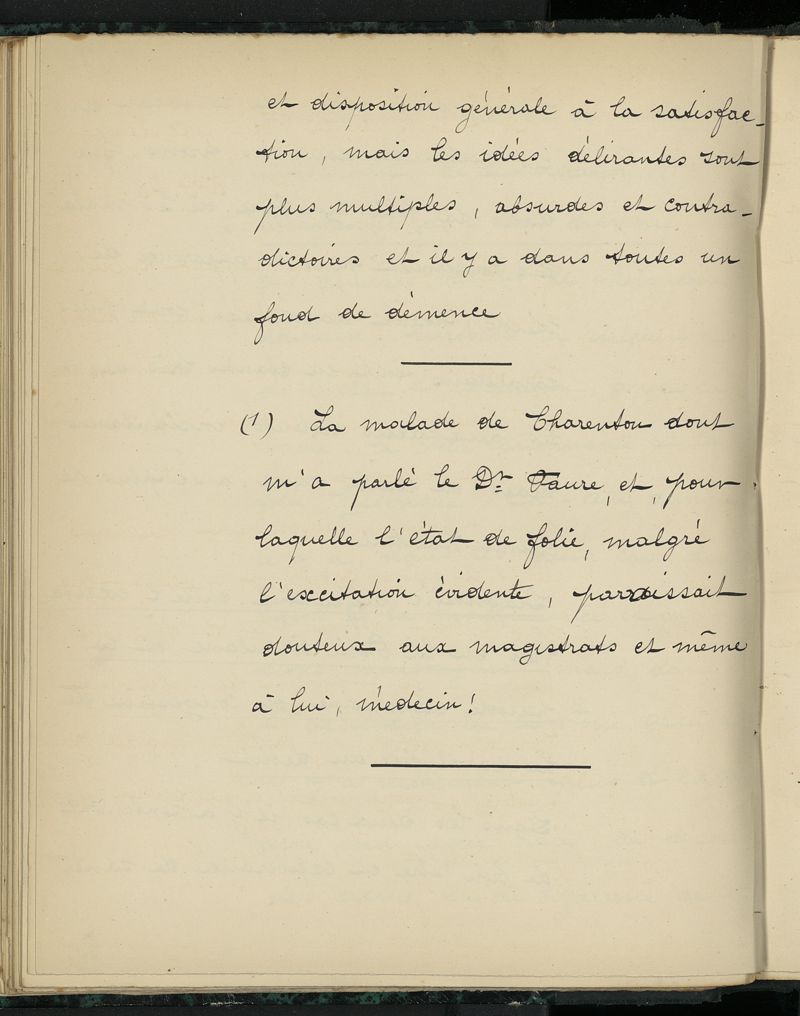 et disposition générale à la satisfac-
tion, mais les idées délirantes sont
plus multiples, absurdes et contra-
dictoires et il y a dans toutes un
fond de démence
(1) La malade de Charenton dont
m'a parlé le Dr Faure, et, pour
laquelle l'état de folie, malgré
l'excitation évidente, paraissait
douteux aux magistrats et même
à lui, médecin!